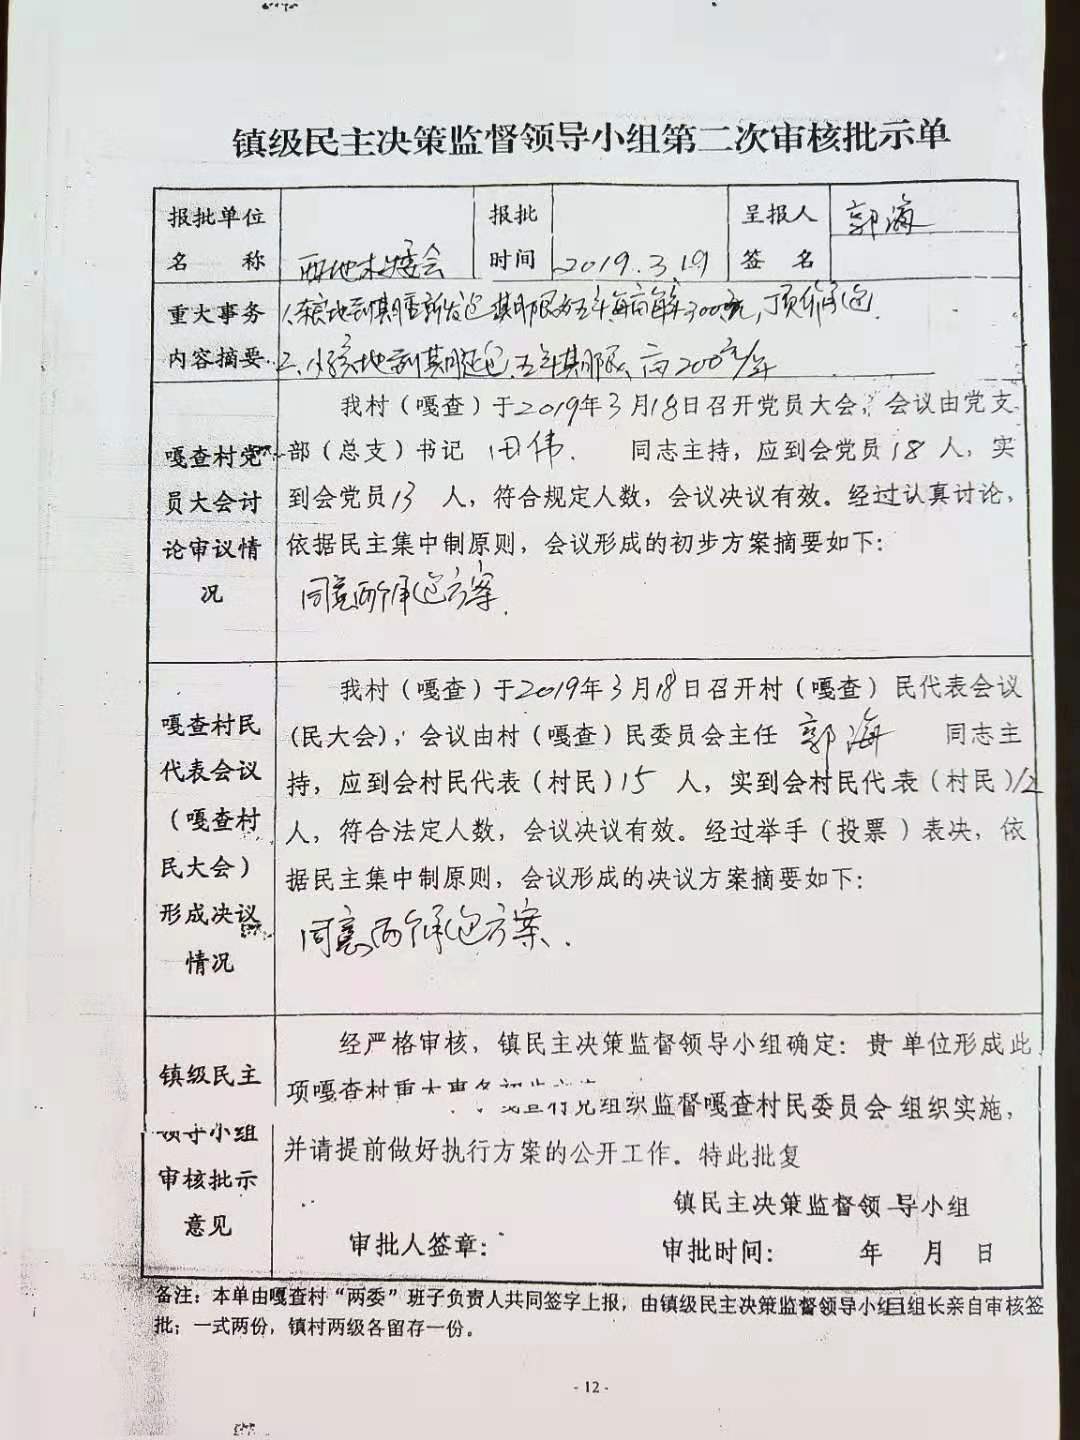 镇级民主决策监督领导小组第二次审核批示单
报批单位名称
西地村委会
报批时间
2019.3.19
呈报人签名
郭海
重大事务内容摘要
地到期重新发包 期限为五年每亩 300元,顶价承包.
二、 地到期 包 五年期限 亩200元/年
嘎查村党员大会讨论审议情况
我村(嘎查)于2019年3月18日召开党员大会,会议由党支
部(总支)书记 田伟. 同志主持,应到会党员18人,实
到会党员13人,符合规定人数,会议决议有效。经过认真讨论,
依据民主集中制原则,会议形成的初步方案摘要如下:
同意两个承包方案.
嘎查村民代表会议(嘎查村民大会)形成决议情况
我村(嘎查)于2019年3月18日召开村(嘎查)民代表会议
(民大会),会议由村(嘎查)民委员会主任 郭海 同志主
持,应到会村民代表(村民)15人,实到会村民代表(村民)12
人,符合法定人数,会议决议有效。经过举手(投票)表决,依
据民主集中制原则,会议形成的决议方案摘要如下:
同意两个承包方案.
镇级民主
领导小组
审核批示
意见
经严格审核,镇民主决策监督领导小组确定:贵单位形成此
项嘎查村重大事务初步
党组织监督嘎查村民委员会组织实施,
并请提前做好执行方案的公开工作。特此批复
镇民主决策监督领导小组
审批人签章: 审批时间: 年 月 日
备注:本单由嘎查村“两委”班子负责人共同签字上报,由镇级民主决策监督领导小组组长亲自审核签
批;一式两份,镇村两级各留存一份。
- 12 -